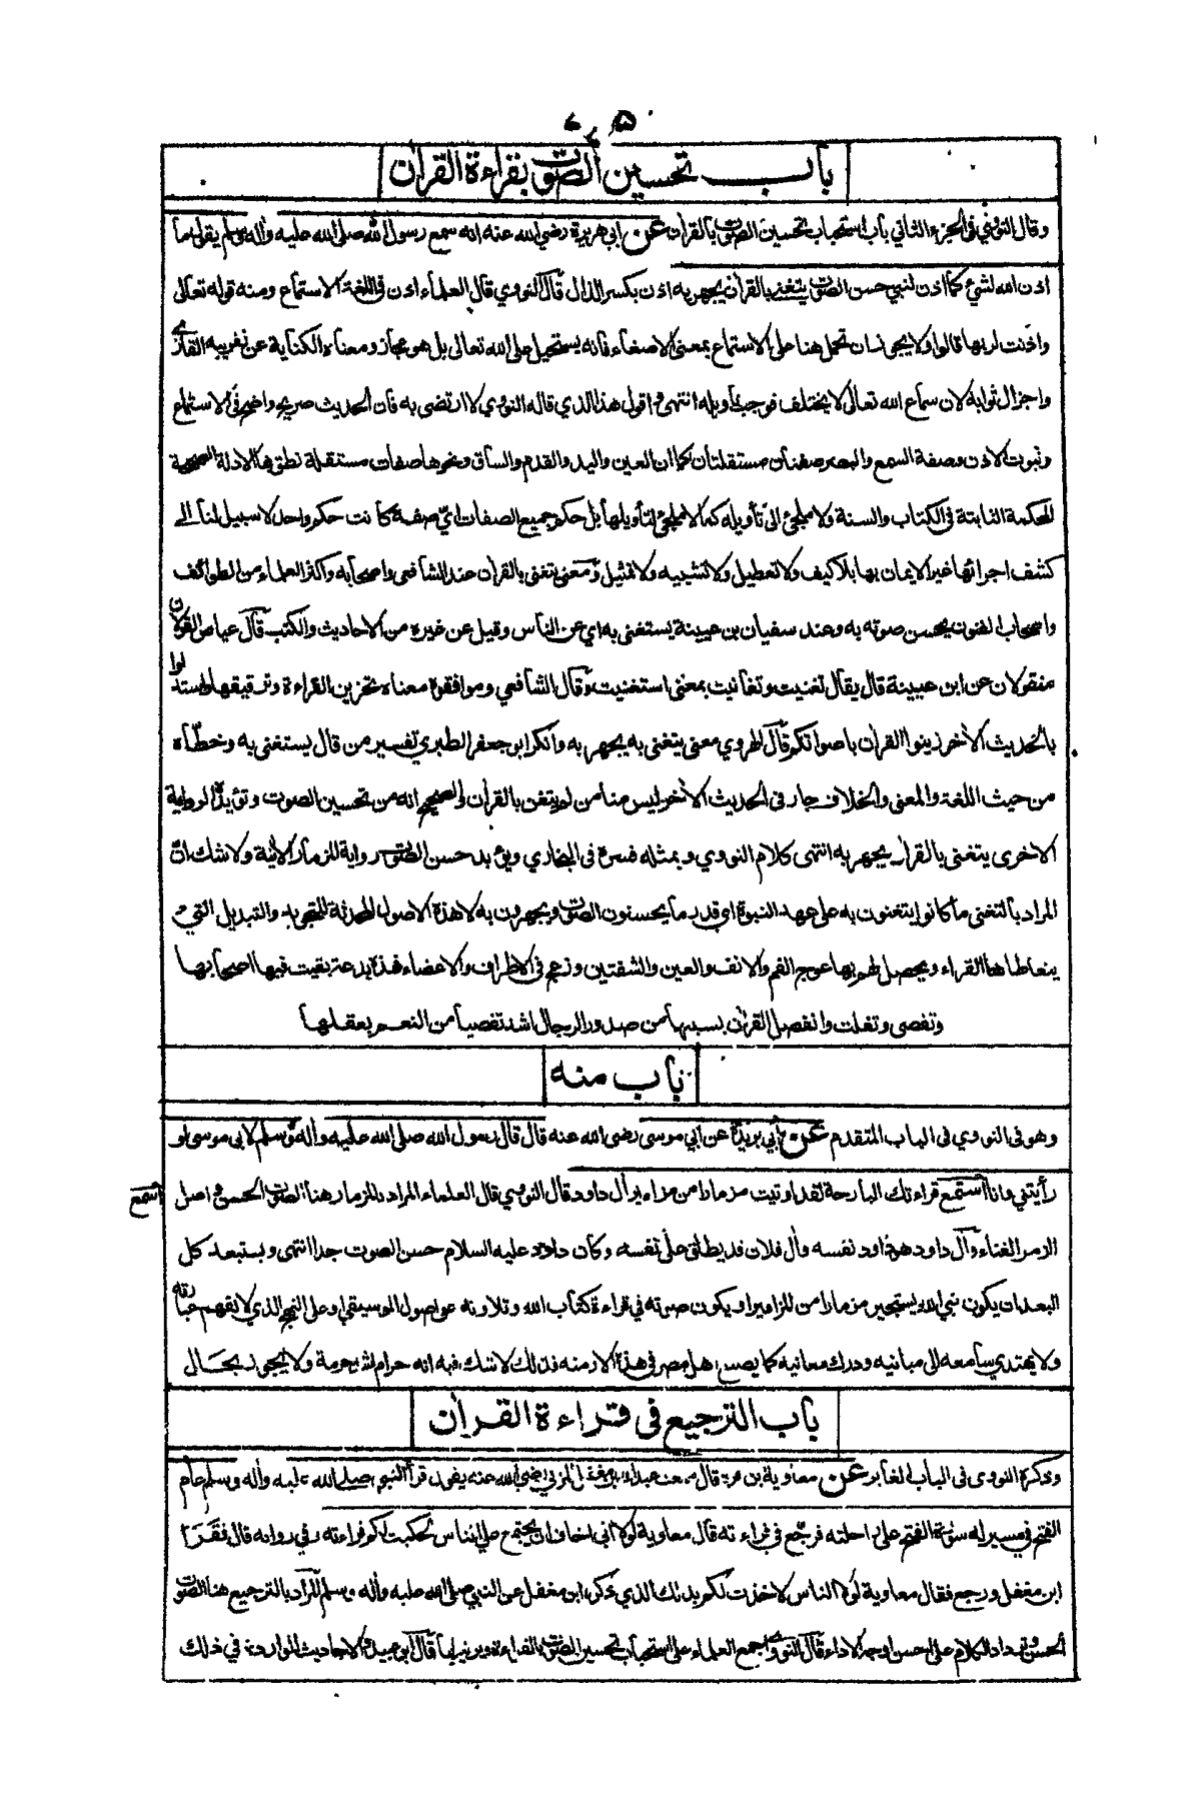 باب تحسين الصوت بقراءة القران
وقال النووي في الجزء الثاني باب استحباب تحسين الصوت بالقران عن ابي هريرة رضي الله عنه انه سمع رسول الله صلى الله عليه واله وسلم يقول ما
اذن الله لشيء كما اذن لنبي حسن الصوت يتغنى بالقران يجهر به اذن بكسر الذال قال النووي قال العلماء اذن في اللغة الاستماع ومنه قوله تعالى
واذنت لربها قالوا ولا يجوز ان تحمل هنا على الاستماع بمعنى الاصغاء فانه يستحيل على الله تعالى بل هو مجاز ومعناه الكناية عن تقريبه القارئ
واجزال ثوابه لان سماع الله تعالى لا يختلف فوجب تاويله انتهى واقول هذا الذي قاله النووي لا ارتضى به فان الحديث صريح واضح في الاستماع
وثبوت الاذن وصفة السمع والبصر صفتان مستقلتان كما ان العين واليد والقدم والساق ونحوها صفات مستقلة نطق بها الادلة الصحيحة
المحكمة الثابتة في الكتاب والسنة ولا ملجئ الى تأويله كما لا ملجئ لتأويلها بل حكم جميع الصفات اي صفة كانت حكم واحد لا سبيل لنا الى
كشف اجرائها غير الايمان بها بلا كيف ولا تعطيل ولا تشبيه ولا تمثيل ومعنى يتغنى بالقران عند الشافعي واصحابه واكثر العلماء من الطوائف
واصحاب الفنون يحسن صوته به وعند سفيان بن عيينة يستغنى به اي عن الناس وقيل عن غيره من الاحاديث والكتب قال عياض القولان
منقولان عن ابن عيينة قال يقال تغنيت وتغانيت بمعنى استغنيت وقال الشافعي وموافقوه معناه تحزين القراءة وترقيقها واستدلوا
بالحديث الاخر زينوا القران باصواتكم قال الهروي معنى يتغنى به يجهر به وانكر ابو جعفر الطبري تفسير من قال يستغنى به وخطأه
من حيث اللغة والمعنى والخلاف جار في الحديث الاخر ليس منا من لم يتغن بالقران والصحيح انه من تحسين الصوت وتؤيده الرواية
الاخرى يتغنى بالقران يجهر به انتهى كلام النووي وبمثله فسره في البخاري ويؤيد حسن الصوت رواية المزمار الاتية ولا شك ان
المراد بالتغنى ما كانوا يتغنون به على عهد النبوة اي قدر ما يحسنون الصوت ويجهرون به لا هذه الاصول المحدثة للتجويد والتبديل التي
يتعاطاها القراء ويحصل لهم بها عوج الفم والانف والعين والشفتين وزحم في الاطراف والاعضاء فهذه بدعة بقيت فيها اصحابها
وتفصى وتفلت وانفصل القران بسببها من صدور الرجال اشد تفصيا من النعم بعقلها
باب منه
وهو في النووي في الباب المتقدم عن ابي بردة عن ابي موسى رضى الله عنه قال قال رسول الله صلى الله عليه واله وسلم لابي موسى لو
رأيتني وانا استمع قراءتك البارحة لقد اوتيت مزمارا من مزامير آل داود قال النووي قال العلماء المراد بالمزمار هنا الصوت الحسن واصل
اسمع
الزمر الغناء وآل داود هو داود نفسه وآل فلان قد يطلق على نفسه وكان داود عليه السلام حسن الصوت جدا انتهى ويستبعد كل
البعد ان يكون نبي الله يستجيز مزمارا من المزامير او يكون صوته في قراءة كتاب الله وتلاوته على اصول الموسيقى او على النهج الذي لا يفهم عبارته
ولا يهتدي سامعه الى مبانيه ودرك معانيه كما يصنع اهل مصر في هذه الازمنة فذلك لا شك فيه انه حرام اشد حرمة ولا يجوز بحال
باب الترجيع في قراءة القران
وذكره النووي في الباب الغابر عن معاوية بن قرة قال سمعت عبد الله بن مغفل المزني رضي الله عنه يقول قرأ النبي صلى الله عليه واله وسلم عام
الفتح في مسير له سورة الفتح على راحلته فرجع في قراءته قال معاوية لولا اني اخاف ان يجتمع علي الناس لحكيت لكم قراءته وفي رواية قال فقرأ
ابن مغفل ورجع فقال معاوية لولا الناس لاخذت لكم بذلك الذي ذكره ابن مغفل عن النبي صلى الله عليه واله وسلم المراد بالترجيع هنا الصوت
الحسن وترداد الكلام على احسن اوجه الاداء قال النووي اجمع العلماء على استحباب تحسين الصوت بالقراءة وترتيلها قال ابو عبيد والاحاديث الواردة في ذلك